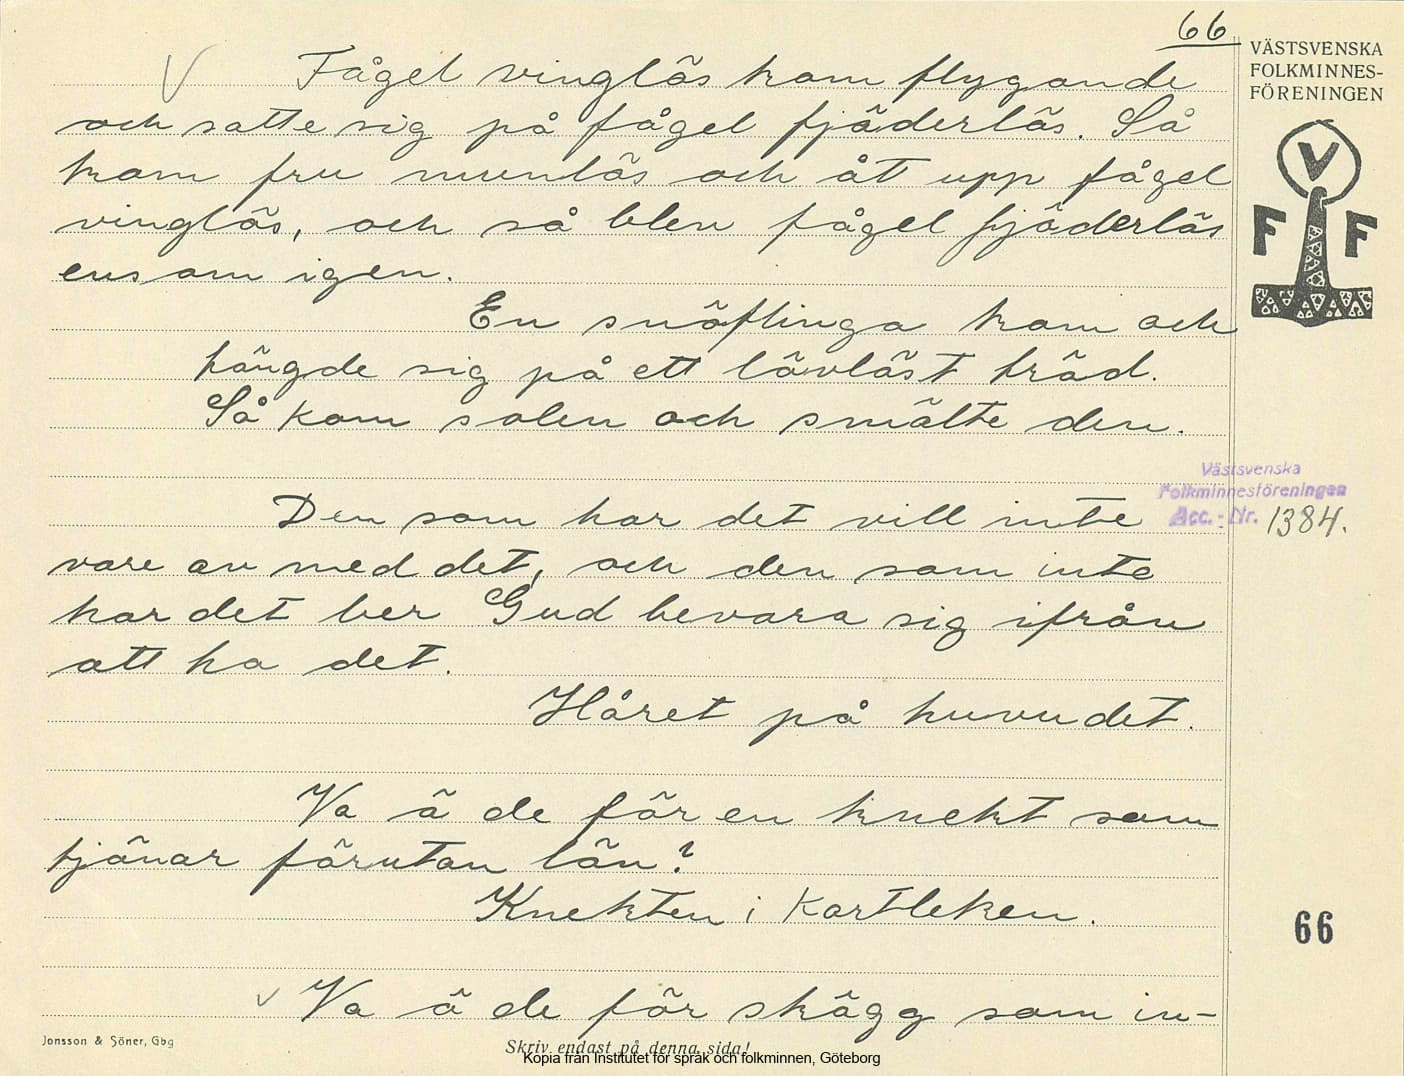 66
VÄSTSVENSKA
FOLKMINNES-
FÖRENINGEN
Fågel vinglös kom flygande
och satte sig på fågel fjäderlös. Så
kom fru munlös och åt upp fågel
vinglös, och så blev fågel fjäderlös
ensam igen.
En snöflinga kom och
hängde sig på ett lövlöst träd.
Så kom solen och smälte den.
V
F F
Västsvenska
Folkminnesföreningen
Acc.-Nr. 1384.
Den som har det vill inte
vare av med det, och den som inte
har det ber Gud bevara sig ifrån
att ha det.
Håret på huvudet.
Va ä de för en knekt som
tjänar förutan lön?
Knekten i Kortleken.
66
Va ä de för skägg som in-
Jonsson & Söner, Gbg
Skriv endast på denna sida!
Kopia från Institutet för språk och folkminnen, Göteborg